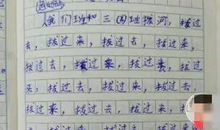 我们班和三国班拔河,拔过
去,拔过来,拔过去,拔过来,
拔过去,拔过来,拔过去,
拔过来,拔过去,拔过来,
拔过去,拔过来,拔过去,
拔过来,拔过去,